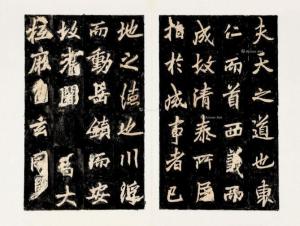 夫天之道也東
仁而首西義而
成故清泰所居
指於成事者已
地之德也川浮
而動岳鎮而安
故耆闍大
麻